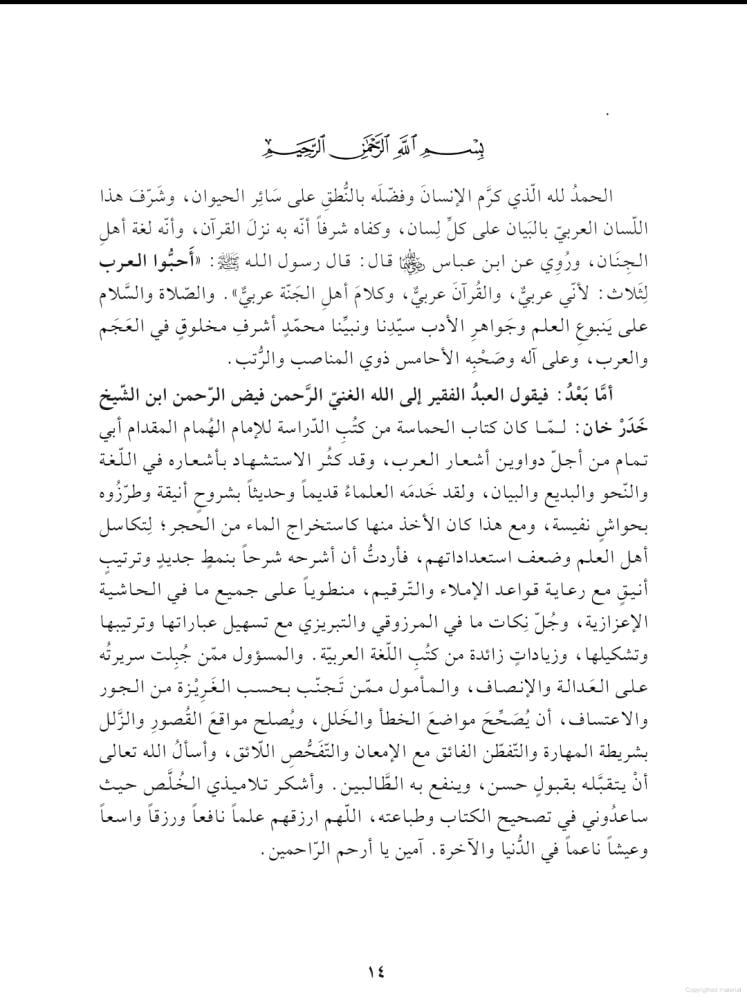 بِسْمِ ٱللَّهِ ٱلرَّحْمَٰنِ ٱلرَّحِيمِ
الحمدُ لله الّذي كرَّم الإنسانَ وفضّلَه بالنُّطقِ على سَائِر الحيوان، وشَرَّفَ هذا
اللّسان العربيّ بالبَيان على كلِّ لِسان، وكفاه شرفاً أنّه به نزلَ القرآن، وأنّه لغة أهلِ
الجِنَان، ورُوِي عن ابن عباس رضي الله عنهما قال: قال رسول الله ﷺ: «أَحبُّوا العرب
لِثَلاث: لأنّي عربيٌّ، والقُرآنَ عربيٌّ، وكلامَ أهلِ الجَنّة عربيٌّ». والصّلاة والسَّلام
على يَنبوعِ العلم وجَواهرِ الأدب سيّدِنا ونبيِّنا محمّدٍ أشرفِ مخلوقٍ في العَجَم
والعرب، وعلى آله وصَحْبِه الأحامس ذوي المناصب والرُّتب.
أمَّا بَعْدُ: فيقول العبدُ الفقير إلى الله الغنيّ الرَّحمن فيض الرّحمن ابن الشّيخ
خَدَرْ خان: لـمّـا كان كتاب الحماسة من كتُبِ الدّراسة للإمام الهُمام المقدام أبي
تمام من أجلّ دواوين أشعار العرب، وقد كثُر الاستشهاد بأشعاره في اللّغة
والنّحو والبديع والبيان، ولقد خَدمَه العلماءُ قديماً وحديثاً بشروحٍ أنيقة وطرّزُوه
بحواشٍ نفيسة، ومع هذا كان الأخذ منها كاستخراج الماء من الحجر؛ لِتكاسل
أهل العلم وضعف استعداداتهم، فأردتُّ أن أشرحه شرحاً بنمطٍ جديدٍ وترتيبٍ
أنيقٍ مع رعاية قواعد الإملاء والتّرقيم، منطوياً على جميع ما في الحاشية
الإعزازية، وجُلّ نِكات ما في المرزوقي والتبريزي مع تسهيل عباراتها وترتيبها
وتشكيلها، وزياداتٍ زائدة من كتُبِ اللّغة العربيّة. والمسؤول ممّن جُبِلت سريرتُه
على العَدالة والإنصاف، والمأمول ممّن تَجنّب بحسب الغَرِيْزة من الجور
والاعتساف، أن يُصَحِّحَ مواضعَ الخطأ والخَلل، ويُصلح مواقعَ القُصورِ والزَّلل
بشريطة المهارة والتّفطّن الفائق مع الإمعان والتّفَحُّصِ اللّائق، وأسألُ الله تعالى
أنْ يتقبَّله بقبولٍ حسن، وينفع به الطَّالبين. وأشكر تلاميذي الخُلَّص حيث
ساعدُوني في تصحيح الكتاب وطباعته، اللّهم ارزقهم علماً نافعاً ورزقاً واسعاً
وعيشاً ناعماً في الدُّنيا والآخرة. آمين يا أرحم الرّاحمين.
١٤
Copyrighted material